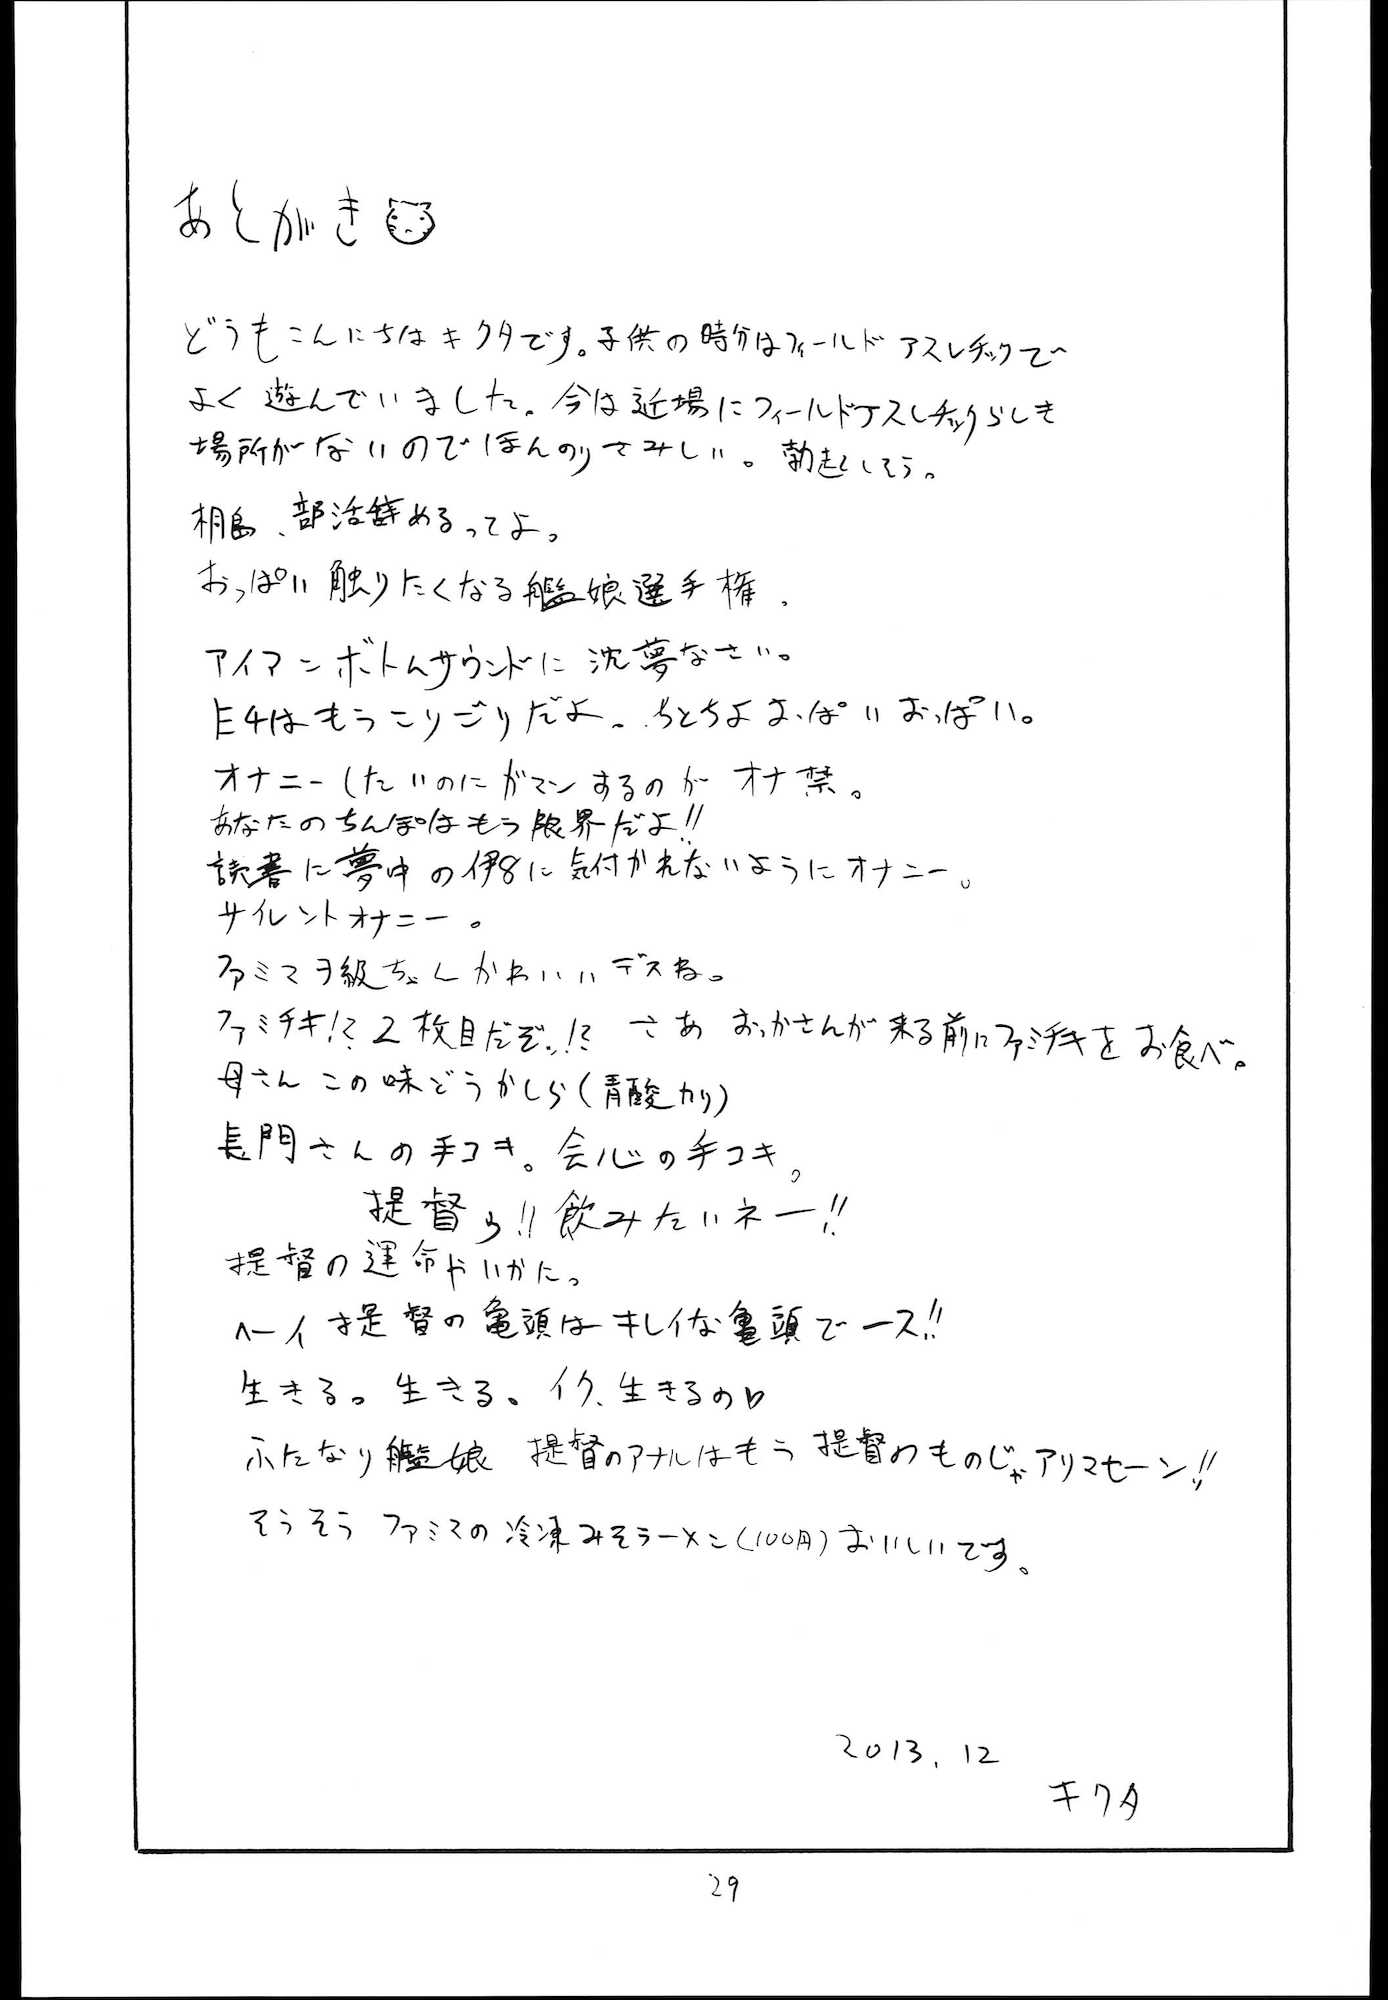 あとがき
どうもこんにちはキクタです。子供の時分はフィールドアスレチックで
よく遊んでいました。今は近場にフィールドアスレチックらしき
場所がないのでほんのりさみしい。勃起しそう。
桐島、部活辞めるってよ。
おっぱい触りたくなる艦娘選手権。
アイアンボトムサウンドに沈夢なさい。
E4はもうこりごりだよ。ちとちよおっぱいおっぱい。
オナニーしたいのにガマンするのがオナ禁。
あなたのちんぽはもう限界だよ!!
読書に夢中の伊8に気付かれないようにオナニー。
サイレントオナニー。
ファミマヲ級ちゃんかわいいデスね。
ファミチキ!? 2枚目だぞ!? さあ おっかさんが来る前にファミチキをお食べ。
母さん この味どうかしら(青酸カリ)
長門さんの手コキ。会心の手コキ。
提督ぅ!! 飲みたいネー!!
提督の運命やいかに。
ヘーイ提督の亀頭はキレイな亀頭でース!!
生きる。生きる。イク、生きるの♡
ふたなり艦娘 提督のアナルはもう提督のものじゃアリマセーン!!
そうそう ファミマの冷凍みそラーメン(100円)おいしいです。
2013.12
キクタ
29